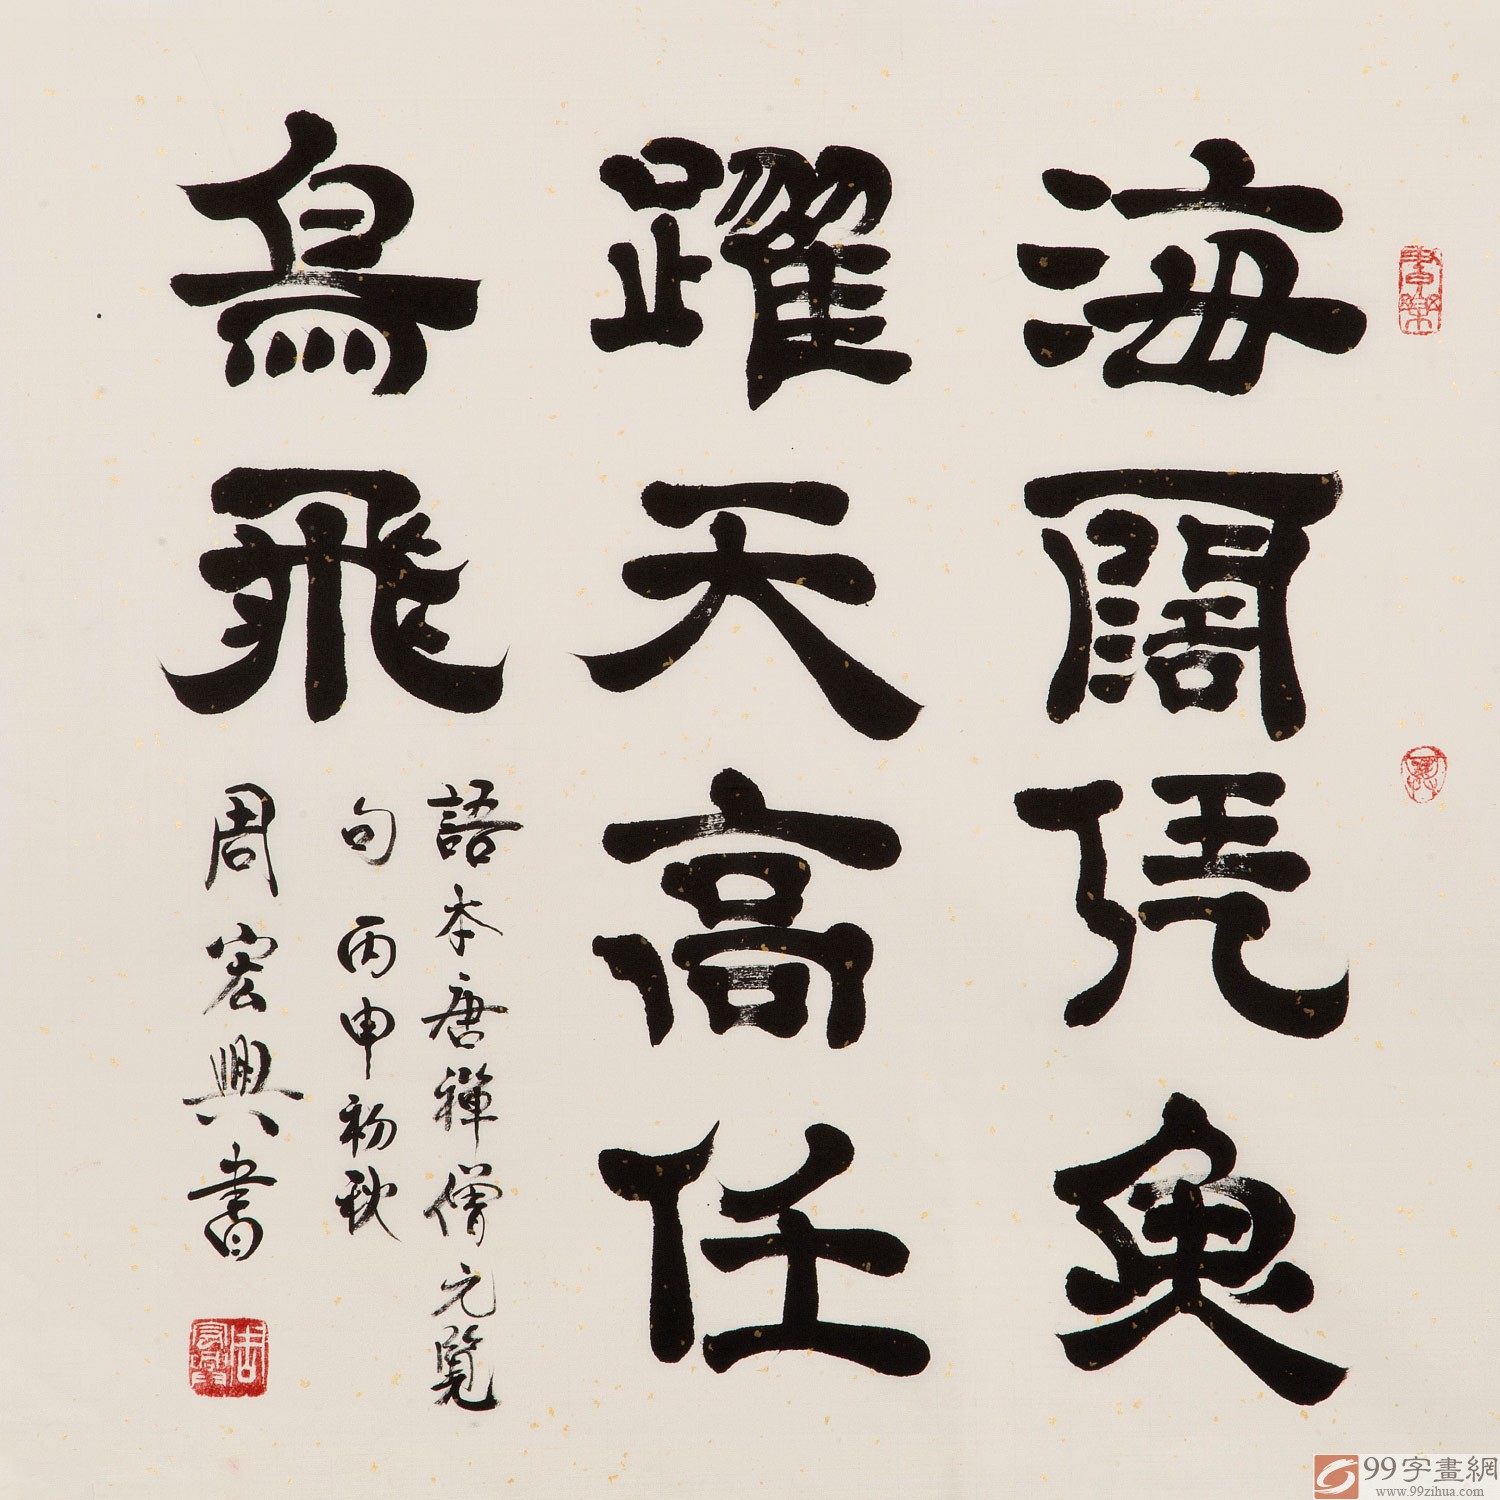 海闊凭魚
躍天高任
鳥飛
語本唐禪僧元覽
句丙申初秋
周宏興書
99字畫網
www.99zihua.com